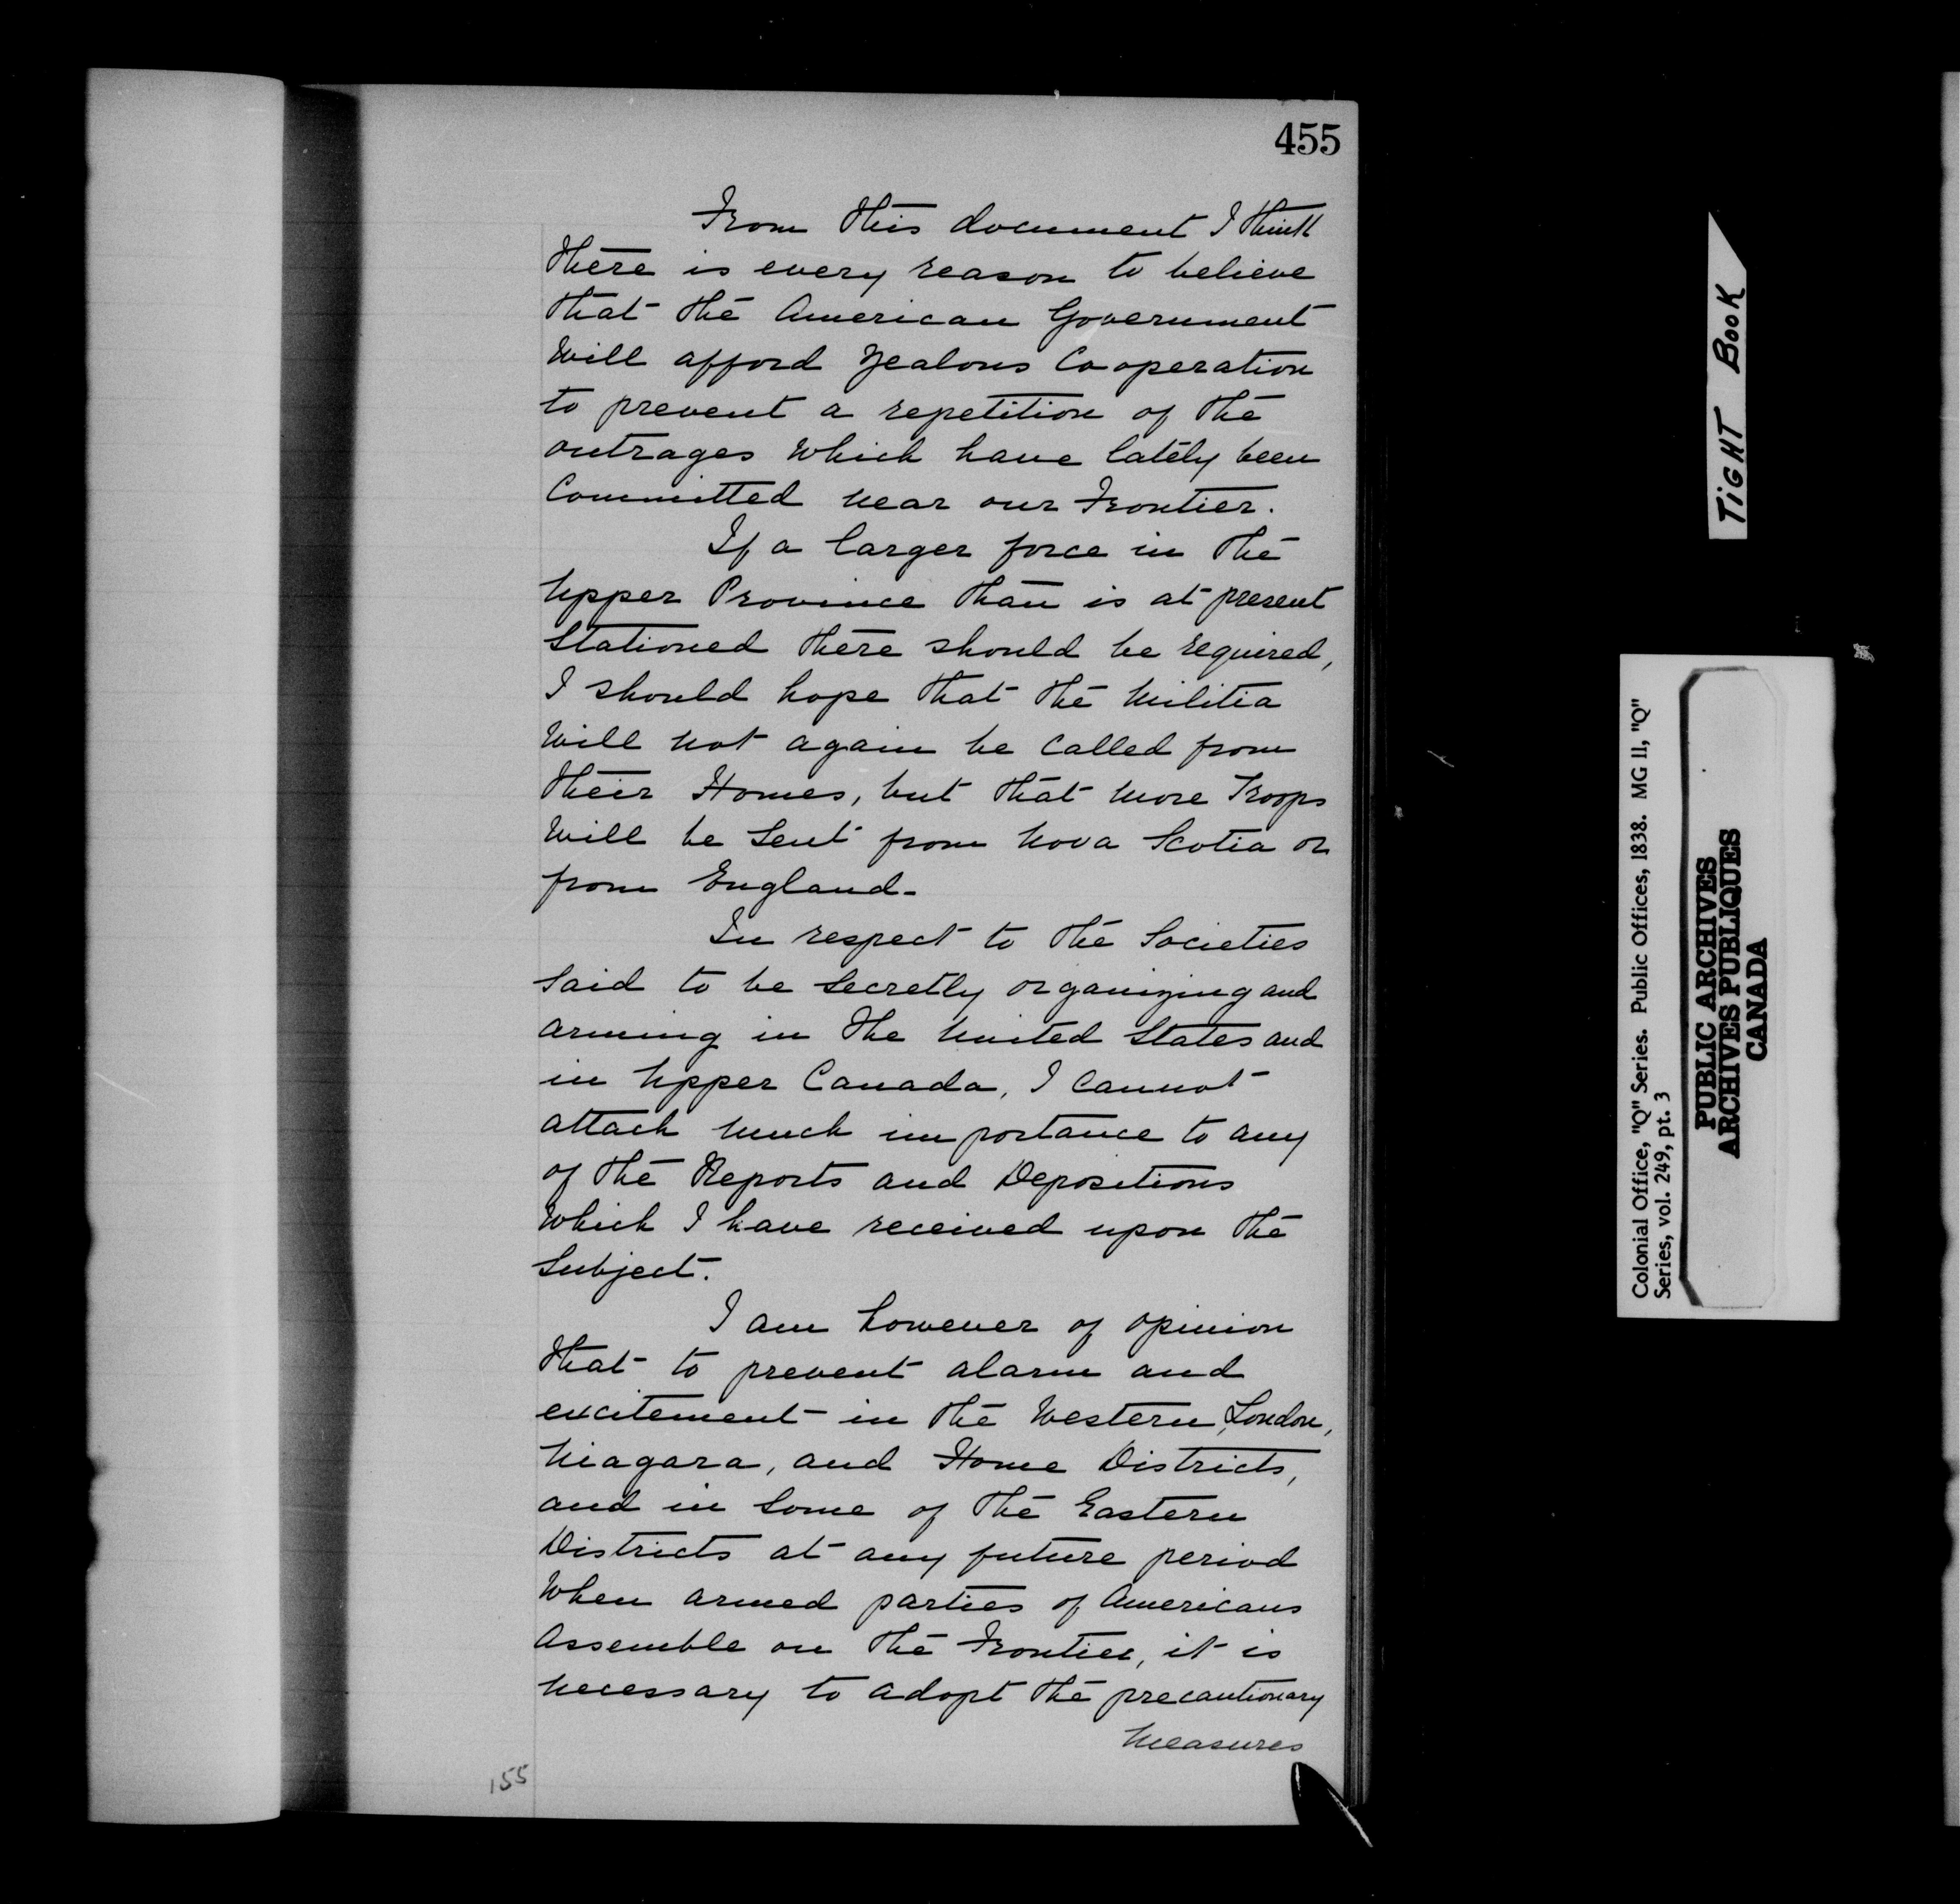 455
From this document I think
there is every reason to believe
that the American Government
Will afford Zealous Cooperation
to prevent a repetition of the
outrages which have lately been
Committed near our Frontier.
If a larger force in the
Upper Province than is at present
Stationed there should be required,
I should hope that the Militia
Will not again be Called from
their Homes, but that more Troops
Will be Sent from Nova Scotia or
from England.
In respect to the Societies
Said to be Secretly organizing and
arming in the United States and
in Upper Canada, I Cannot
attach much importance to any
of the Reports and Depositions
Which I have received upon the
Subject.
I am however of opinion
that to prevent alarm and
excitement in the Western, London,
Niagara, and Home Districts,
and in Some of the Eastern
Districts at any future period
When armed parties of Americans
Assemble on the Frontier, it is
necessary to adopt the precautionary
Measures
155
TIGHT BOOK
Colonial Office, "Q" Series. Public Offices, 1838. MG 11, "Q"
Series, vol. 249, pt. 3
PUBLIC ARCHIVES
ARCHIVES PUBLIQUES
CANADA